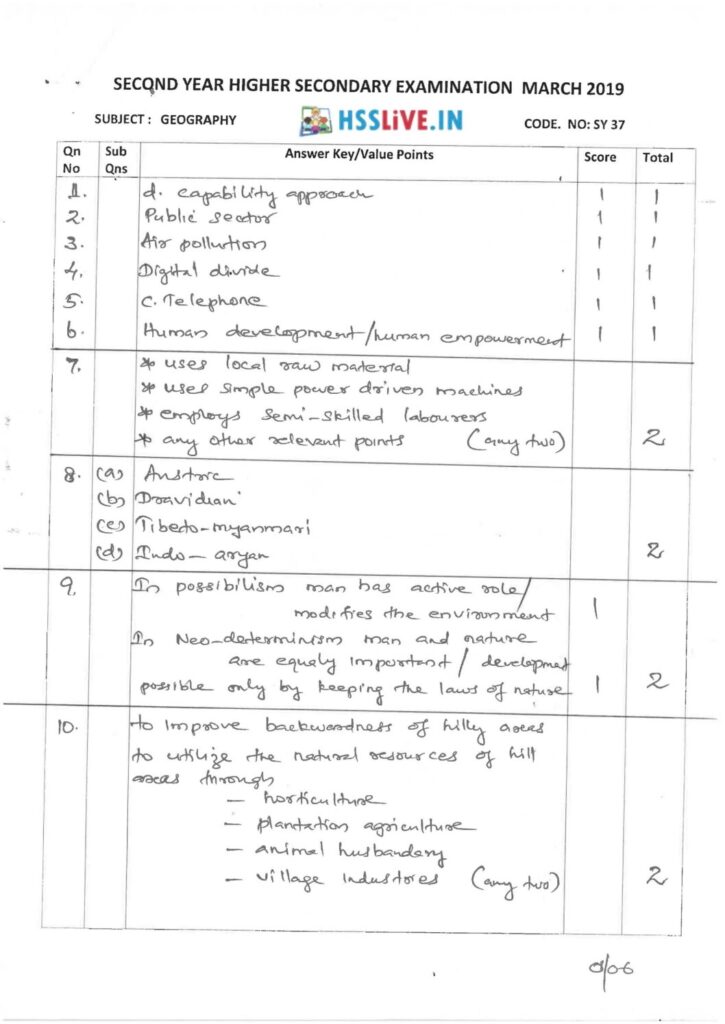 SECOND YEAR HIGHER SECONDARY EXAMINATION MARCH 2019
SUBJECT : GEOGRAPHY HSSLiVE.IN CODE. NO: SY 37
Qn No Sub Qns Answer Key/Value Points Score Total
1. d. capability approach 1 1
2. Public sector 1 1
3. Air pollution 1 1
4. Digital divide 1 1
5. C. Telephone 1 1
6. Human development/human empowerment 1 1
7. * uses local raw material
* uses simple power driven machines
* employs semi-skilled labourers
* any other relevant points (any two) 2
8. (a) Austric
(b) Dravidian
(c) Tibeto-myanmari
(d) Indo-aryan 2
9. In possibilism man has active role/
modifies the environment 1
In Neo-determinism man and nature
are equaly important / development
possible only by keeping the laws of nature 1 2
10. to improve backwardness of hilly areas
to utilize the natural resources of hill
areas through
- horticulture
- plantation agriculture
- animal husbandery
- village industores (any two) 2